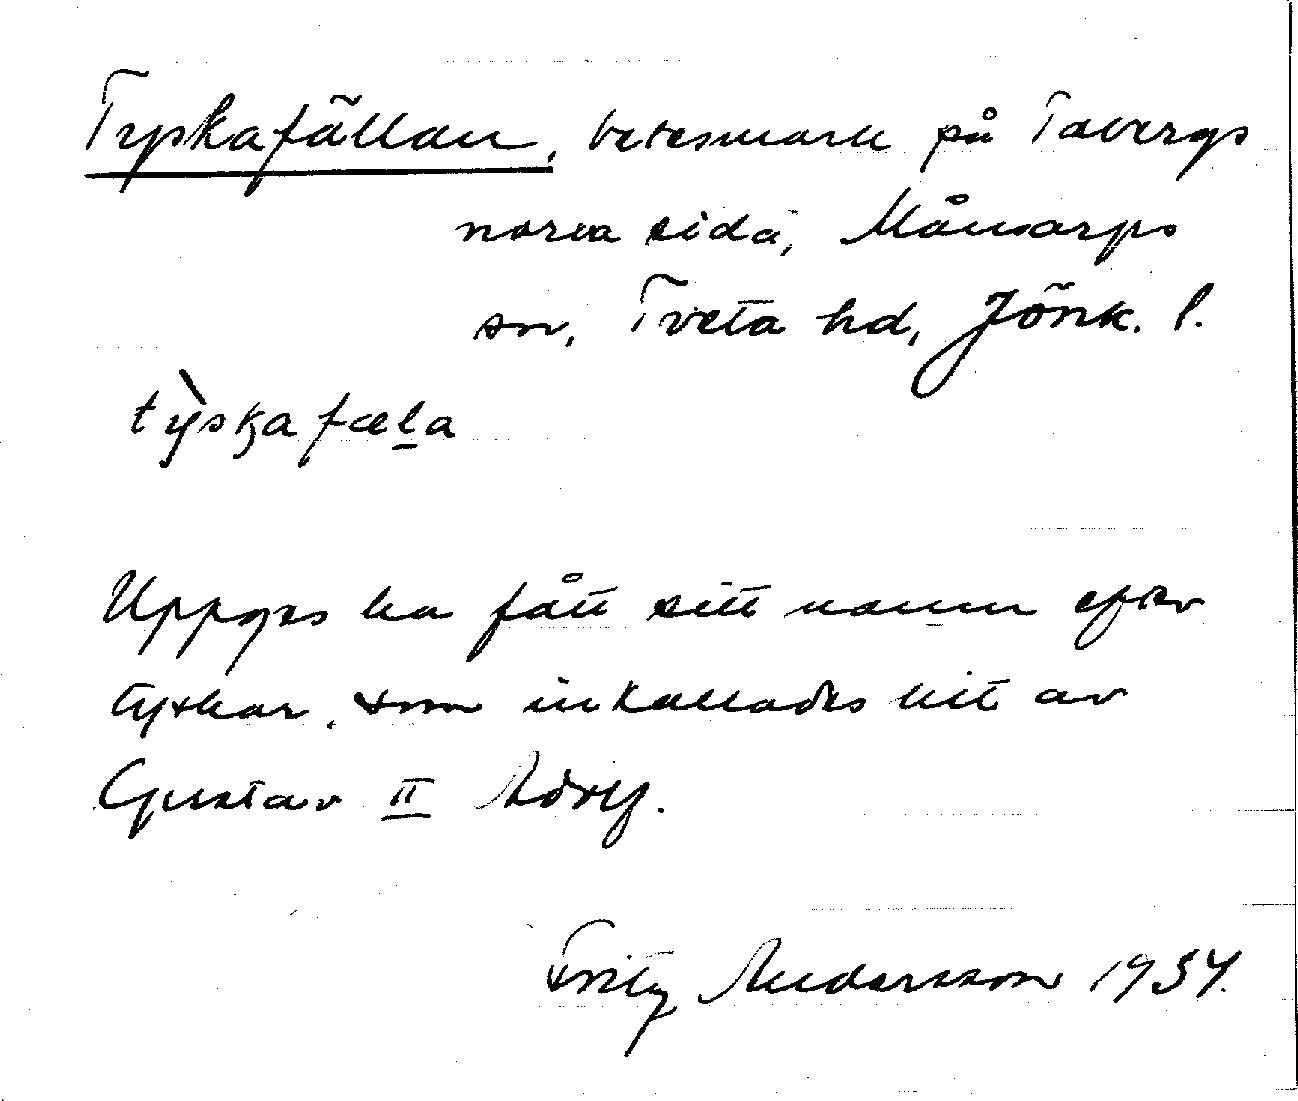 Tyskafällan, betesmark på Tabergs
norra sida, Månsarps
sn, Tveta hd, Jönk. l.
tỳskafæla
Uppges ha fått sitt namn efter
tyskar, som inkallades hit av
Gustav II Adolf.
Fritz Andersson 1934.